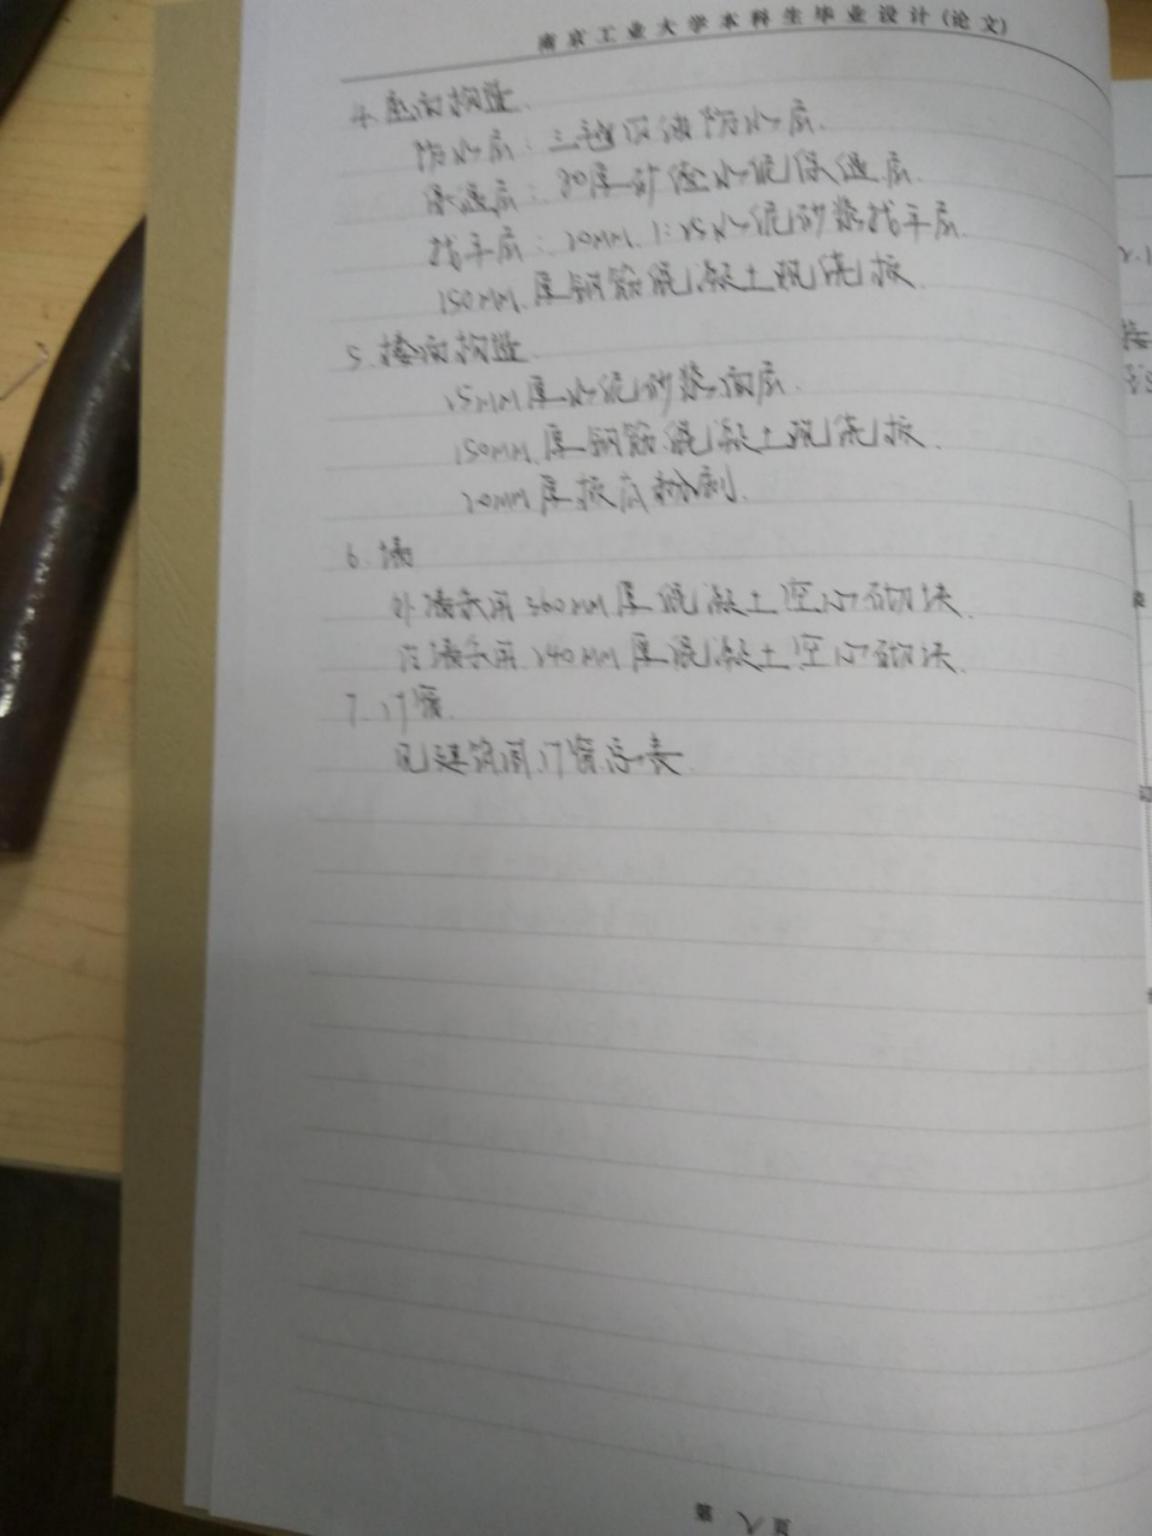 南京工业大学本科生毕业设计(论文)
4.屋面构造.
防水层：三毡四油防水层.
保温层：80厚矿渣水泥保温层.
找平层：20mm.1:25水泥砂浆找平层.
150mm.厚钢筋混凝土现浇板.
5.楼面构造.
25mm厚水泥砂浆面层.
150mm.厚钢筋混凝土现浇板.
20mm厚板底粉刷.
6.墙
外墙采用360mm厚混凝土空心砌块.
内墙采用240mm厚混凝土空心砌块.
7.门窗.
见建筑图门窗总表.
第 页